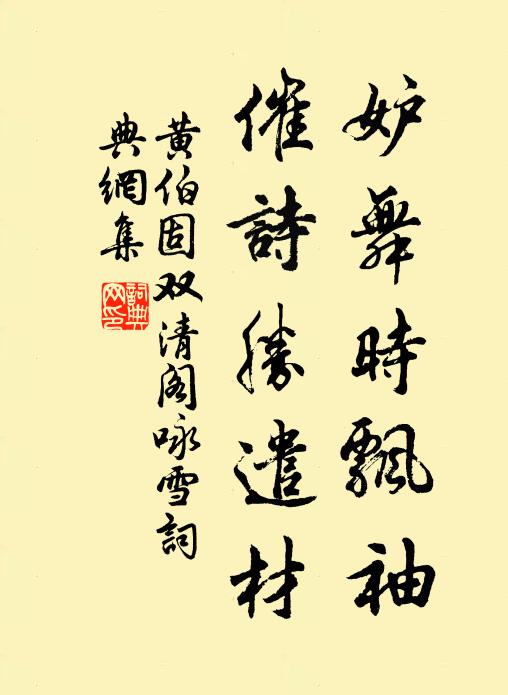 妒舞時飄袖
催詩勝遣材
黄伯固双清阁咏雪詞
典網集
詞典网印